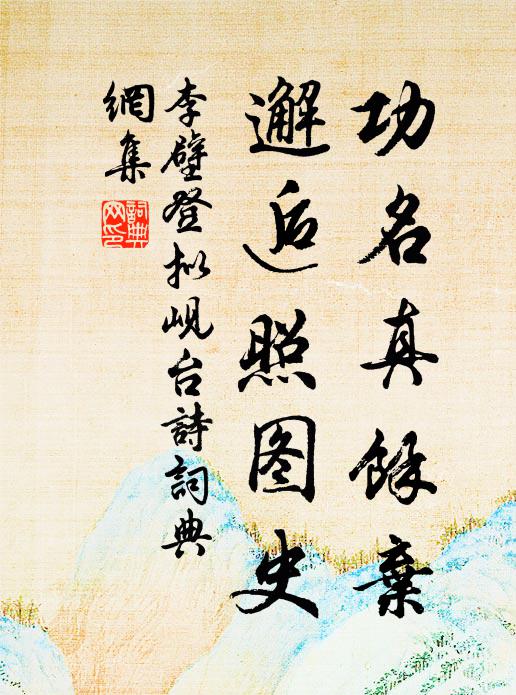 功名真餘棄
邂逅照图史
李壁登拟峴台詩詞典
網集
詞典
网印